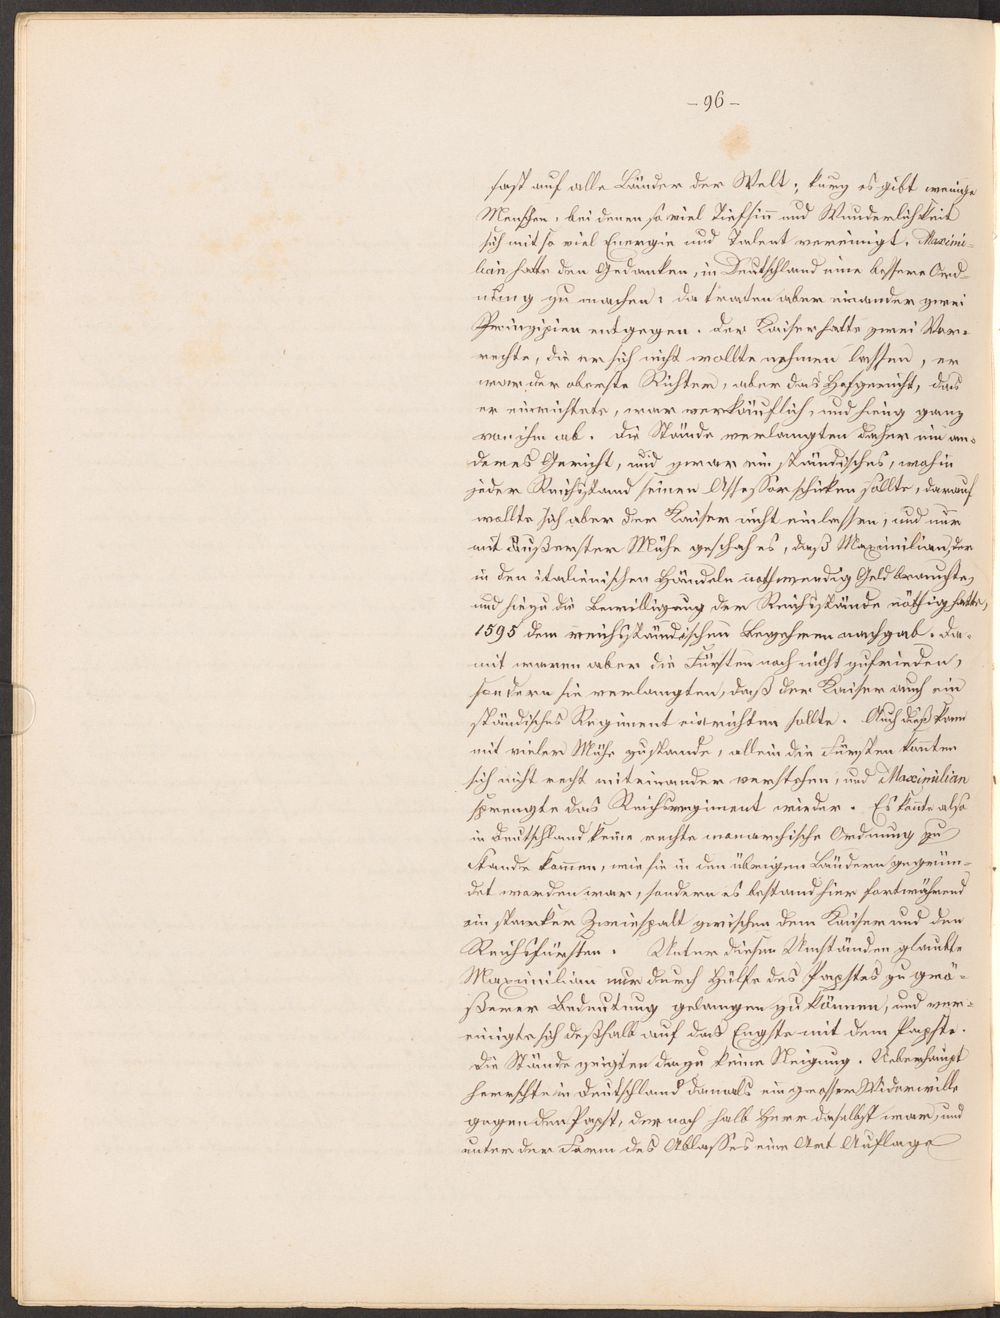 - 96 -
fast auf alle Länder der Welt; kurz es gibt wenige
Menschen, bei denen so viel Tiefsinn und Wunderlichkeit
sich mit so viel Energie und Talent vereinigt. Maximi-
lian hatte den Gedanken, in Deutschland eine bessere Ord-
nung zu machen; da traten aber einander zwei
Prinzipien entgegen. Der Kaiser hatte zwei Vor-
rechte, die er sich nicht wollte nehmen lassen, er
war der oberste Richter, aber das Hofgericht, das
er einrichtete, war verkäuflich, und hieng ganz
von ihm ab. Die Stände verlangten daher ein an-
deres Gericht, und zwar ein ständisches, wohin
jeder Reichsstand seinen Assessor schicken sollte, darauf
wollte sich aber der Kaiser nicht einlassen, und nur
mit äußerster Mühe geschah es, daß Maximilian, der
in den italienischen Händeln nothwendig Geld brauchte,
und hiezu die Bewilligung der Reichsstände nöthig hatte,
1595 dem reichsständischen Begehren nachgab. Da-
mit waren aber die Fürsten noch nicht zufrieden,
sondern sie verlangten, daß der Kaiser auch ein
ständisches Regiment einrichten sollte. Auch dieß kam
mit vieler Mühe zustande, allein die Fürsten konnten
sich nicht recht miteinander verstehen, und Maximilian
sprengte das Reichsregiment wieder. Es konnte also
in Deutschland keine rechte monarchische Ordnung zu
Stande kommen, wie sie in den übrigen Ländern gegrün-
det worden war, sondern es bestand hier fortwährend
ein starker Zwiespalt zwischen dem Kaiser und den
Reichsfürsten. Unter diesen Umständen glaubte
Maximilian nur durch Hülfe des Papstes zu grö-
ßerer Bedeutung gelangen zu können, und ver-
einigte sich deßhalb auf das Engste mit dem Papste.
Die Stände zeigten dazu keine Neigung. Ueberhaupt
herrschte in Deutschland damals ein grosser Widerwille
gegen den Papst, der noch halb Herr daselbst war, und
unter der Form des Ablasses eine Art Auflage